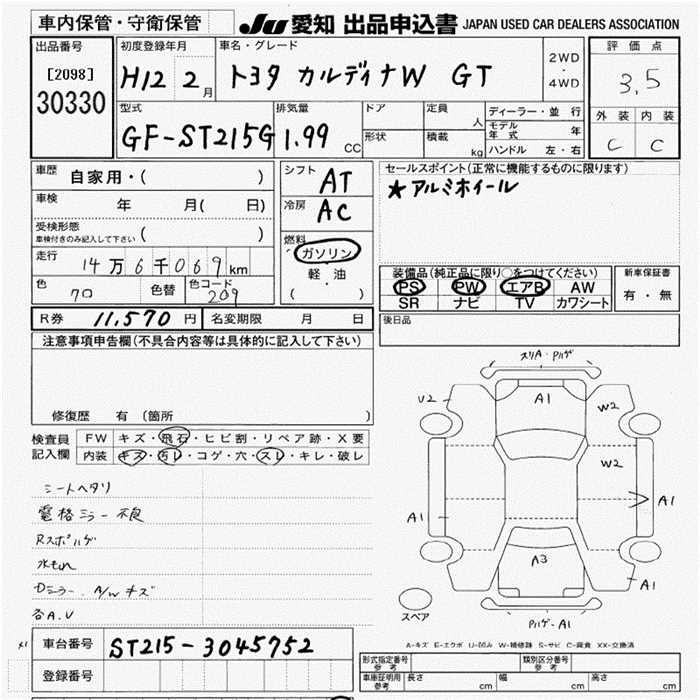 車内保管・守衛保管
JU 愛知 出品申込書 JAPAN USED CAR DEALERS ASSOCIATION
出品番号
[2098]
30330
初度登録年月
H12 2月
車名・グレード
トヨタ カルディナW GT
2WD
・
4WD
評価点
3,5
外装 内装
C C
型式
GF-ST215G
排気量
1.99 CC
ドア
形状
定員 人
積載 kg
ディーラー・並行
モデル年式 年
ハンドル 左・右
車歴
自家用・( )
車検
年 月( 日)
受検形態
車検付きのみ記入して下さい ( )
走行
14万6千069km
色
クロ
色替
色コード
209
シフト
AT
冷房
AC
燃料
ガソリン
軽・油
( )
セールスポイント(正常に機能するものに限ります)
★アルミホイール
装備品(純正品に限り○をつけてください)
PS PW エアB AW
SR ナビ TV カワシート
新車保証書
有・無
R券 11,570 円 名変期限 月 日
後日品
注意事項申告欄(不具合内容等は具体的に記入して下さい)
修復歴 有(箇所
検査員
記入欄
FW キズ・飛石・ヒビ割・リペア跡・X要
内装 キズ・汚レ・コゲ・穴・スレ・キレ・破レ
シートヘタリ
電格ミラー不良
Rスポハゲ
水もれ
Dミラー、A/Wキズ
各A.U
スリA・Pハゲ
A1
U2
W2
W2
A1
A1
A3
A1
スペア
Pハゲ・A1
A-キズ E-エクボ U-凹み W-補修跡 S-サビ C-腐食 XX-交換済
x1
車台番号 ST215-3045752
登録番号
形式指定番号
参考
類別区分番号
参考
車庫証明用
参考
長さ cm 幅 cm 高さ cm